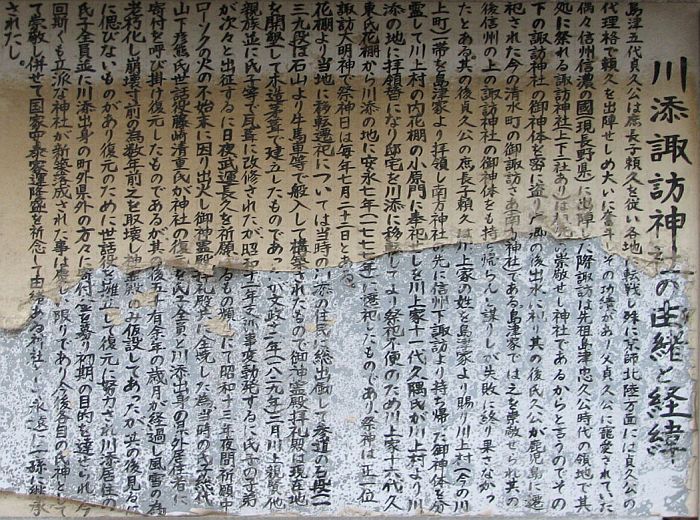 川添諏訪神社の由緒と経緯
島津五代貞久公は庶長子頼久を従い各地に転戦し殊に京師北陸方面には貞久公の
代理格で頼久を出陣せしめ大いに奮斗しその功績があり父貞久公に寵愛されていた
偶々信州信濃の國(現長野県)に出陣した際諏訪は先祖島津忠久公時代の領地で其
処に祭れる諏訪神社(上下二社あり)は崇敬せし神社であるからと言うのでその
下の諏訪神社の御神体を密に盗りの後出水に利り其の後氏久公が鹿児島に遷
祀された今の清水町の御諏訪さあ南方神社である島津家では之を崇敬せられ其の
後信州の上の諏訪神社の御神体をも持ち帰らん謀りしが失敗に終り果さなかっ
たとある其の後貞久公の庶長子頼久は川上家の姓を島津家より賜り川上村(今の川
上町)一帯を島津家より拝領し南方神社の先に信州下諏訪より持ち帰った御神体を分
霊して川上村の内花棚の小原門に奉祀せしを川上家十一代久隅氏が川上村より川
添の地に拝領替になり邸宅を川添に移転してより祭祀不便のため川上家十六代久
東氏花棚から川添の地に安永七年(一七七七年)に遷祀したものであり祭神は正一位
諏訪大明神で祭神日は毎年七月二十八日とある
花棚より当地に移転遷祀については当時の川添の住民が総出働して参道の石段二
三九段は石山より牛馬車等で搬入して構築されたもので御神霊殿拝礼殿は現在地
を開墾して木造茅葺で建立したものであったが文政十二年(一八二九年)二月川上親賢他
親族並に氏子等で瓦葺に改修されたが昭和十二年支那事変勃発するに氏子の子弟
が次々と出征するに日夜武運長久を祈願するもの頻りにて昭和十三年夜間祈願中
ローソクの火の不始末に因り出火し御神霊殿拝礼殿共に全焼した為当時の氏子総代
山下彦熊氏世話役藤崎清重氏が神社の復興を氏子全員と川添出身の県外居住者に
寄付を呼び掛け復元したものであるが其の後五十有余年の歳月が経過し風雪の為
老朽化し崩壊寸前の為数年前之を取壊し神霊殿のみ仮設してあったが其の後見るに
に偲びないものがあり復元のために世話役を選立して復元に努力され川添居住の
氏子全員並に川添出身の町外県外の方々に寄付を募り初期の目的を達され今
回斯くも立派な神社が新築落成された事は慶しい限りであり今後益々目の氏神として
て崇敬し併せて国家安泰家運隆盛を祈念して由緒ある神社を永遠に二孫に継承
されたし。